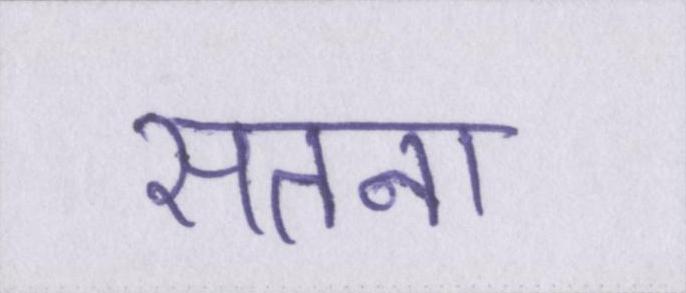 सतना